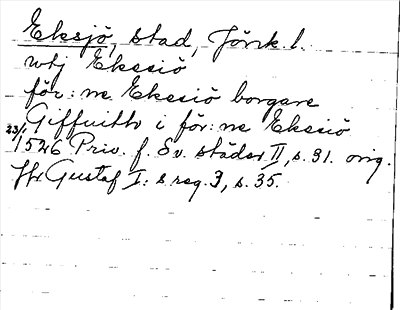 Eksjö, stad, Jönk. l.
utj Ekesiö
för: ne Ekesiö borgare
Giffuith i för: ne Ekesiö
23/1 1546 Priv. f. Sv. städer II, s. 31. orig.
Gustaf I: s reg. 3, s. 35.